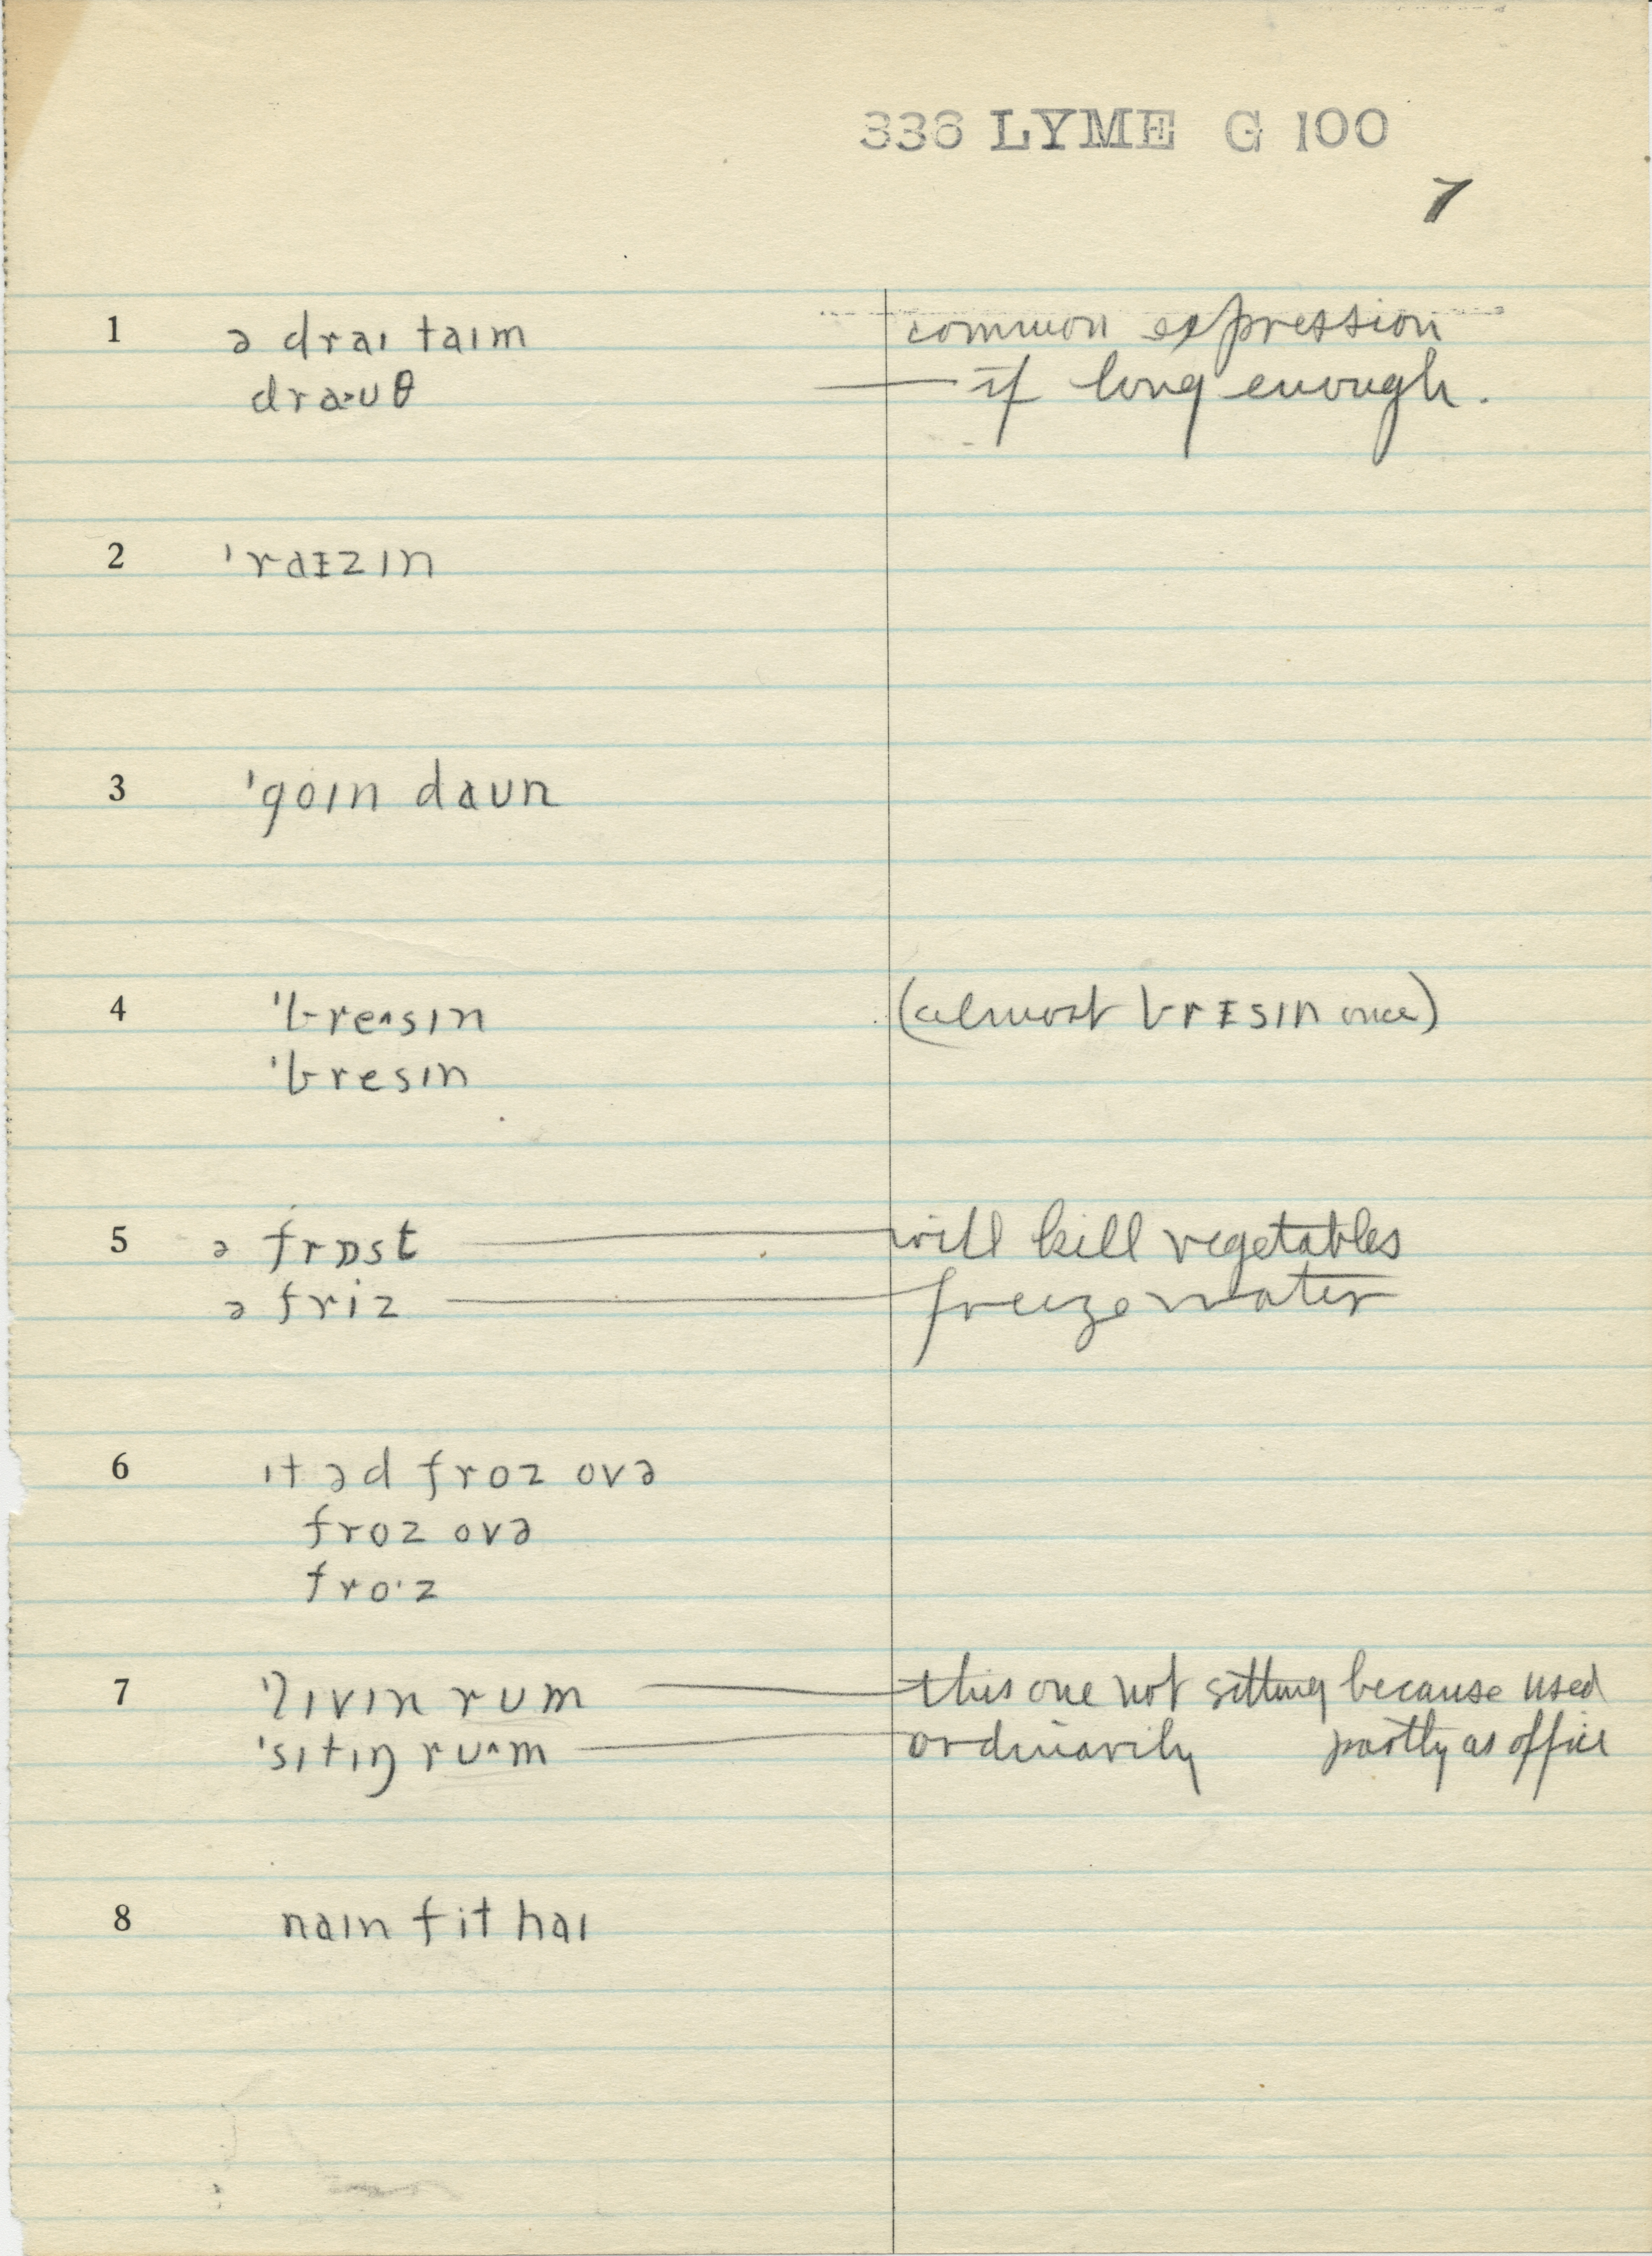 336 LYME G 100
7
1 ə draɪ taɪm common expression
draˑuθ — if long enough.
2 ˈraɪzɪn
3 ˈgoɪn daun
4 ˈbreˑsɪn (almost brɪsɪn once)
ˈbresɪn
5 ə frɒst — will kill vegetables
ə friz — freeze water
6 ɪt əd froz ovə
froz ovə
froˑz
7 ˈlɪvɪn rum — this one not sitting because used
ˈsɪtɪŋ ruˑm — ordinarily partly as office
8 naɪn fit haɪ